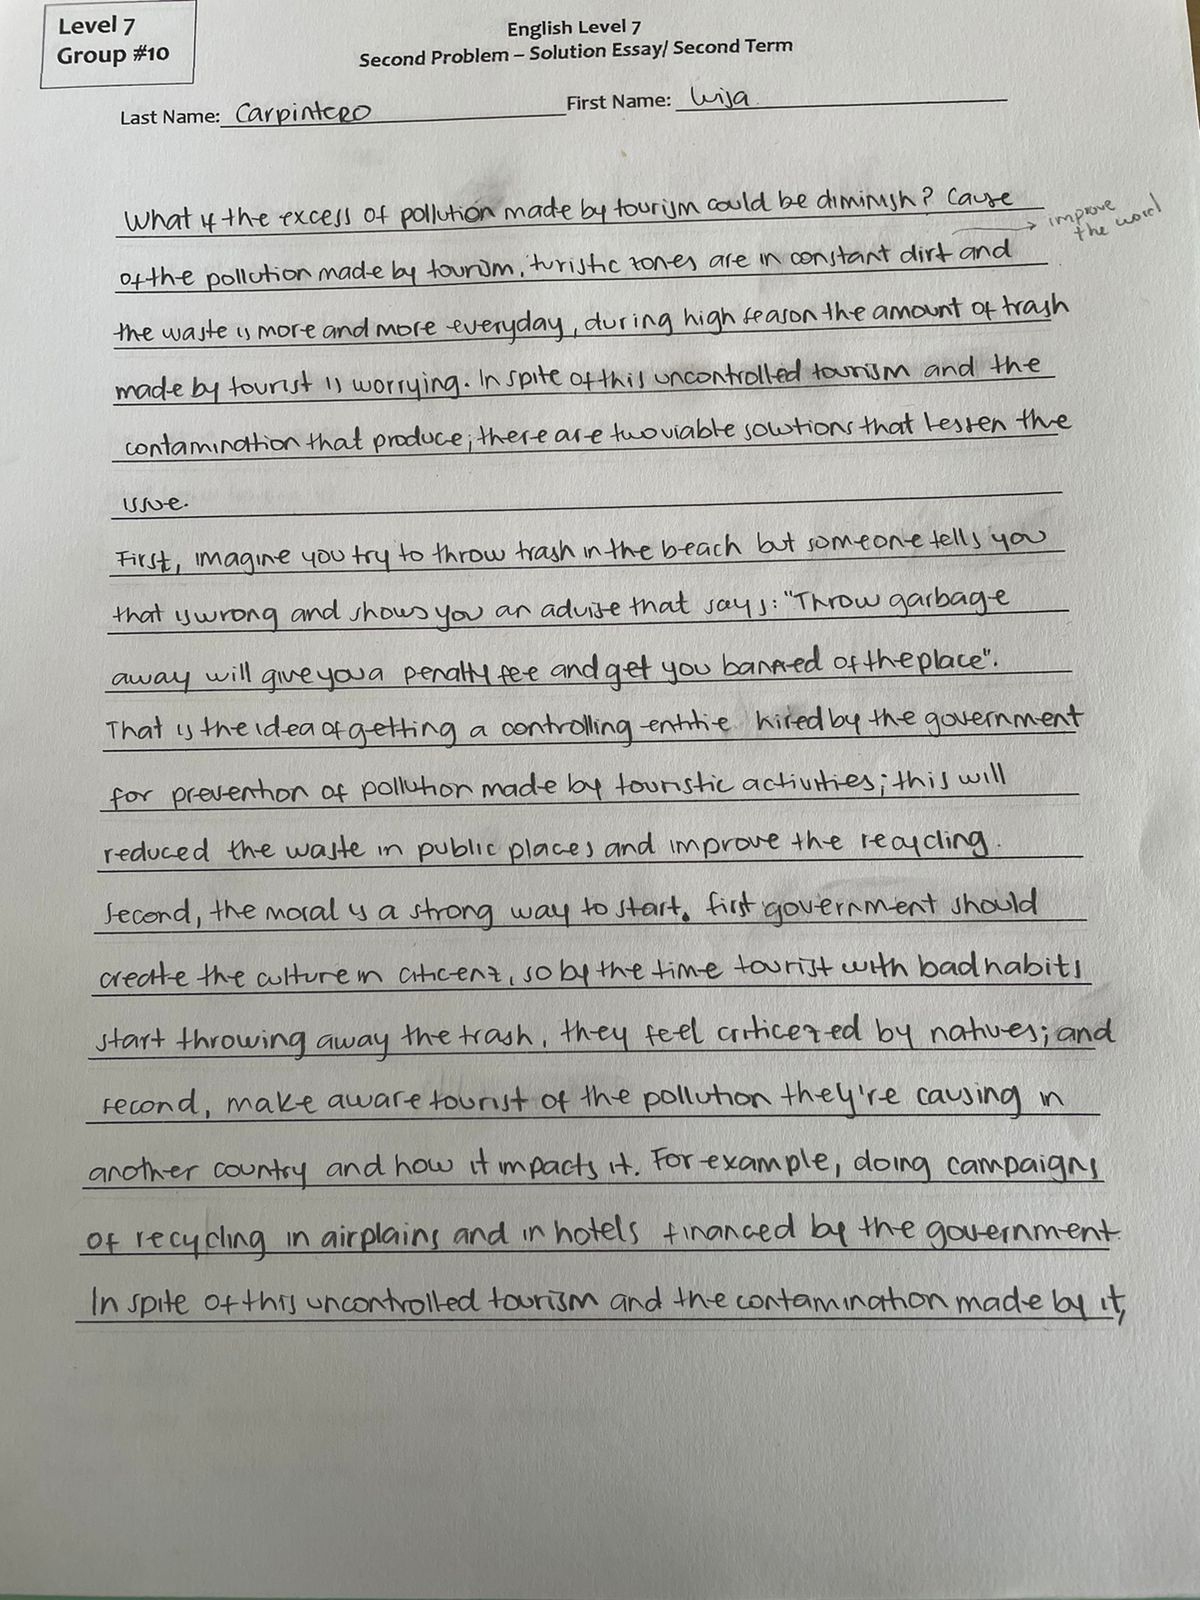 Level 7
Group #10
English Level 7
Second Problem – Solution Essay/ Second Term
Last Name: Carpintero
First Name: Luisa
What if the excess of pollution made by tourism could be diminish? Cause
improve
the word
of the pollution made by tourism, turistic zones are in constant dirt and
the waste is more and more everyday, during high season the amount of trash
made by tourist is worrying. In spite of this uncontrolled tourism and the
contamination that produce; there are two viable solutions that lessen the
issue.
First, imagine you try to throw trash in the beach but someone tells you
that is wrong and shows you an advise that says: "Throw garbage
away will give you a penalty fee and get you banned of the place".
That is the idea of getting a controlling entitie hired by the government
for prevention of pollution made by touristic activities; this will
reduced the waste in public places and improve the recycling.
Second, the moral is a strong way to start. first government should
create the culture in citicenz, so by the time tourist with bad habits
start throwing away the trash, they feel criticezed by natives; and
second, make aware tourist of the pollution they're causing in
another country and how it impacts it. For example, doing campaigns
of recycling in airplains and in hotels financed by the government.
In spite of this uncontrolled tourism and the contamination made by it,